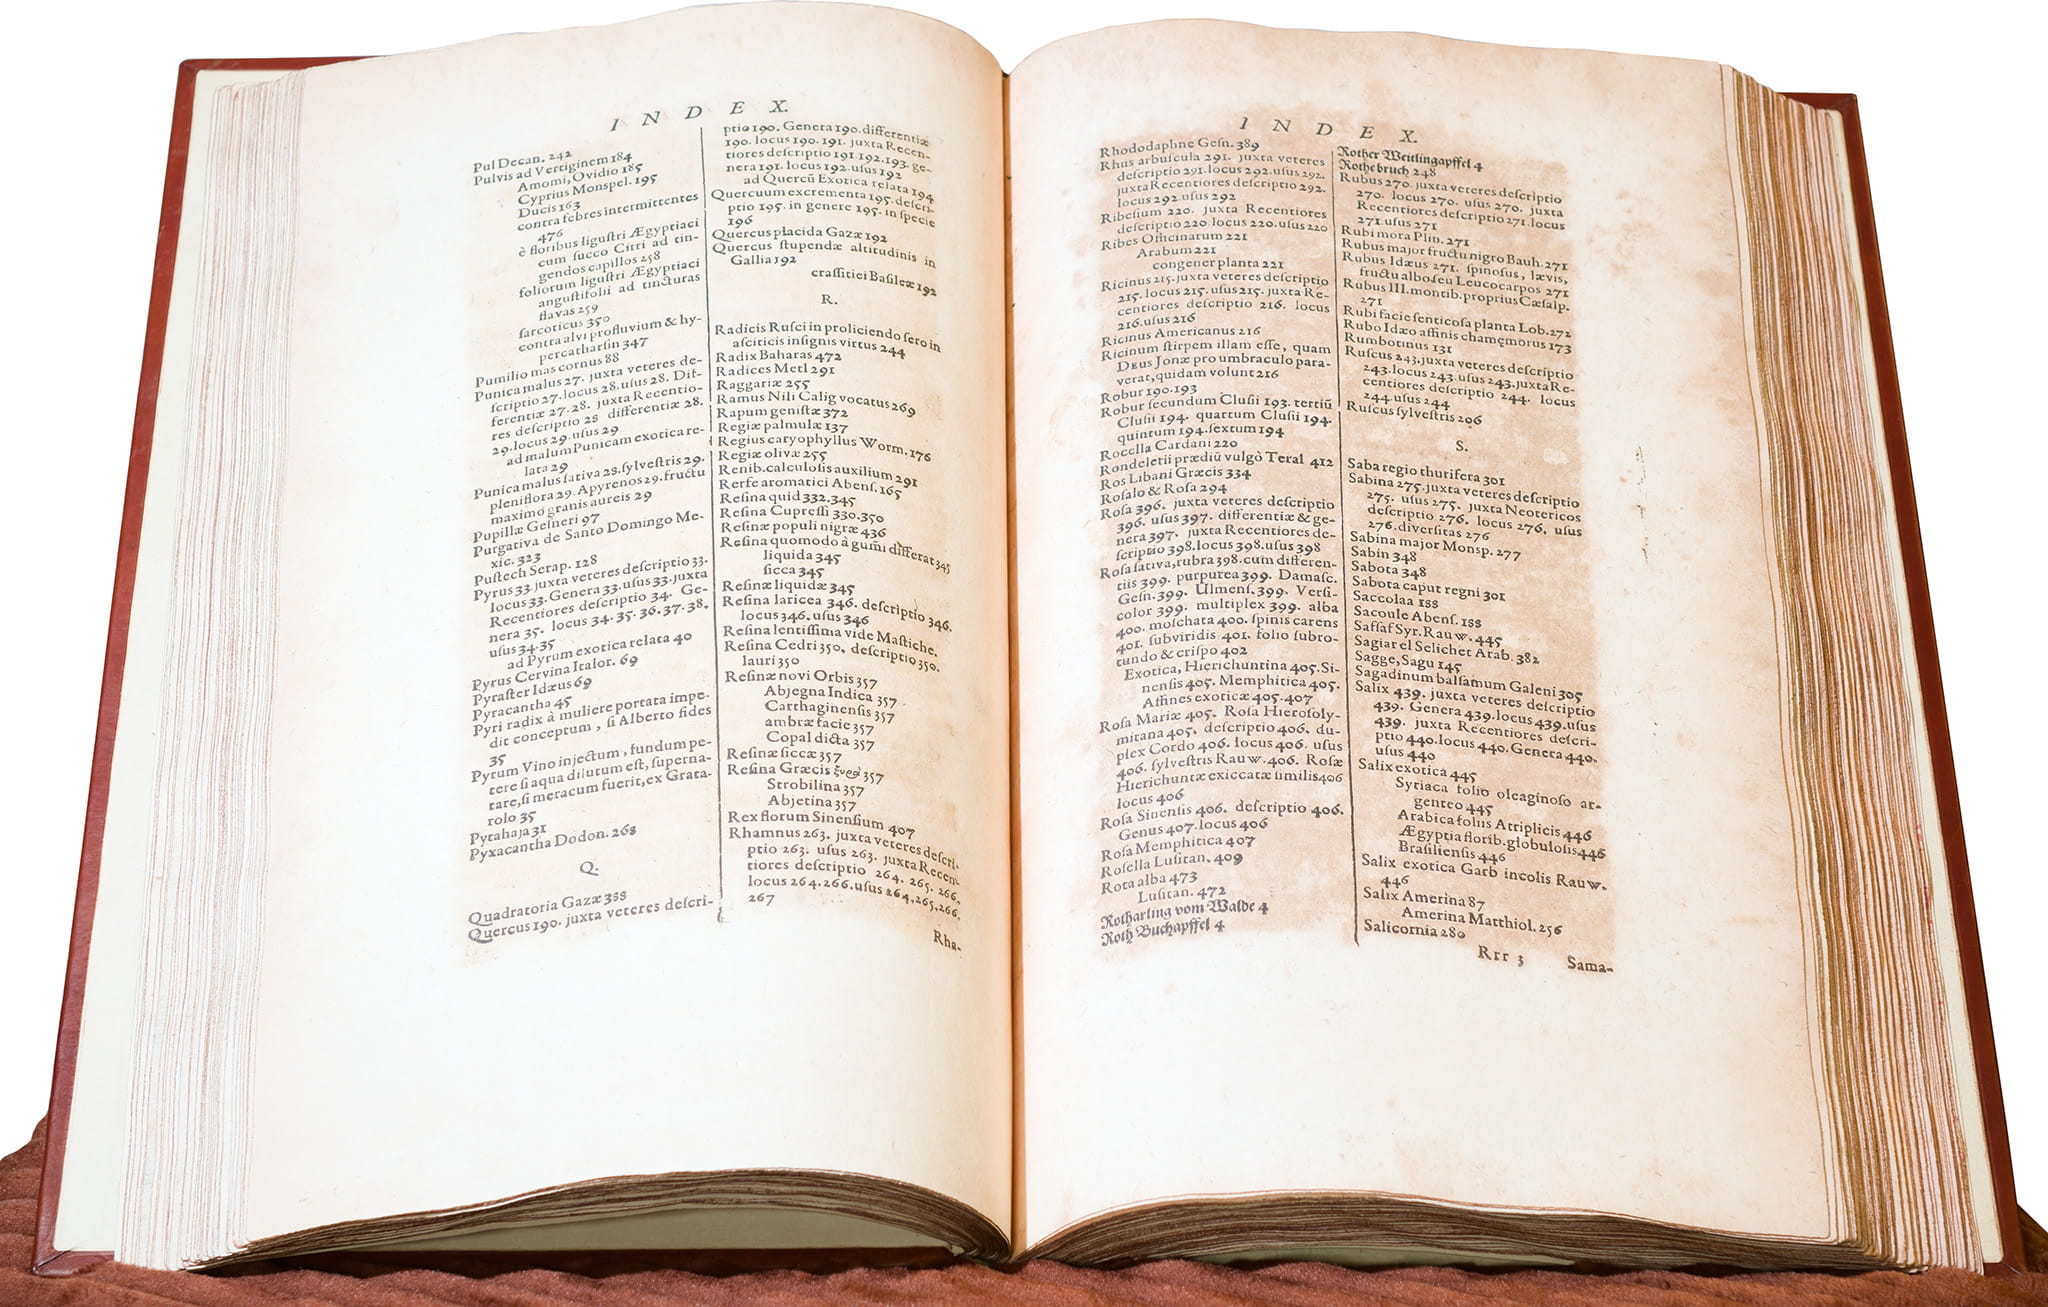 INDEX.
Pul Decan. 242
Pulvis ad Vertiginem 184
Amomi, Ovidio 185
Cyprius Monspel. 195
Ducis 163
contra febres intermittentes
476
è floribus ligustri Ægyptiaci
cum succo Citri ad tin-
gendos capillos 258
foliorum ligustri Ægyptiaci
angustifolii ad tincturas
flavas 259
sarcoticus 350
contra alvi profluvium & hy-
percatharsin 347
Pumilio mas cornus 88
Punica malus 27. juxta veteres de-
scriptio 27. locus 28. usus 28. Dif-
ferentiæ 27. 28. juxta Recentio-
res descriptio 28 differentiæ 28.
29. locus 29. usus 29
ad malum Punicam exotica re-
lata 29
Punica malus sativa 28. sylvestris 29.
pleniflora 29. Apyrenos 29. fructu
maximo granis aureis 29
Pupillæ Gesneri 97
Purgativa de Santo Domingo Me-
xic. 323
Pustech Serap. 128
Pyrus 33. juxta veteres descriptio 33.
locus 33. Genera 33. usus 33. juxta
Recentiores descriptio 34. Ge-
nera 35. locus 34. 35. 36. 37. 38.
usus 34. 35
ad Pyrum exotica relata 40
Pyrus Cervina Italor. 69
Pyraster Idæus 69
Pyracantha 45
Pyri radix à muliere portata impe-
dit conceptum, si Alberto fides
35
Pyrum Vino injectum, fundum pe-
tere si aqua dilutum est, superna-
tare, si meracum fuerit, ex Grata-
rolo 35
Pytahaja 31
Pyxacantha Dodon. 268
Q.
Quadratoria Gazæ 388
Quercus 190. juxta veteres descri-
ptio 190. Genera 190. differentiæ
190. locus 190. 191. juxta Recen-
tiores descriptio 191. 192. 193. ge-
nera 191. locus 192. usus 192
ad Quercū Exotica relata 194
Quercuum excrementa 195. descri-
ptio 195. in genere 195. in specie
196
Quercus placida Gazæ 192
Quercus stupendæ altitudinis in
Gallia 192
crassitiei Basileæ 192
R.
Radicis Rusci in proliciendo sero in
asciticis insignis virtus 244
Radix Baharas 472
Radices Metl 291
Raggariæ 255
Ramus Nili Calig vocatus 269
Rapum genistæ 372
Regiæ palmulæ 137
Regius caryophyllus Worm. 176
Regiæ olivæ 255
Renib. calculosis auxilium 291
Rerfe aromatici Abens. 165
Resina quid 332. 345
Resina Cupressi 330. 350
Resinæ populi nigræ 436
Resina quomodo à gum̄i differat 345
liquida 345
sicca 345
Resinæ liquidæ 345
Resina laricea 346. descriptio 346.
locus 346. usus 346
Resina lentissima vide Mastiche.
Resina Cedri 350. descriptio 350.
lauri 350
Resinæ novi Orbis 357
Abjegna Indica 357
Carthaginensis 357
ambræ facie 357
Copal dicta 357
Resinæ siccæ 357
Resina Græcis 357
Strobilina 357
Abjetina 357
Rex florum Sinensium 407
Rhamnus 263. juxta veteres descri-
ptio 263. usus 263. juxta Recen-
tiores descriptio 264. 265. 266.
locus 264. 266. usus 264. 265. 266.
267
Rha-
INDEX.
Rhododaphne Gesn. 389
Rhus arbuscula 291. juxta veteres
descriptio 291. locus 292. usus 292.
juxta Recentiores descriptio 292.
locus 292. usus 292
Ribesium 220. juxta Recentiores
descriptio 220. locus 220. usus 220
Ribes Officinarum 221
Arabum 221
congener planta 221
Ricinus 215. juxta veteres descriptio
215. locus 215. usus 215. juxta Re-
centiores descriptio 216. locus
216. usus 216
Ricinus Americanus 216
Ricinum stirpem illam esse, quam
Deus Jonæ pro umbraculo para-
verat, quidam volunt 216
Robur 190. 193
Robur secundum Clusii 193. tertiū
Clusii 194. quartum Clusii 194.
quintum 194. sextum 194
Rocella Cardani 220
Rondeletii prædiū vulgò Teral 412
Ros Libani Græcis 334
Rosalo & Rosa 294
Rosa 396. juxta veteres descriptio
396. usus 397. differentiæ & ge-
nera 397. juxta Recentiores de-
scriptio 398. locus 398. usus 398
Rosa sativa, rubra 398. cum differen-
tiis 399. purpurea 399. Damasc.
Gesn. 399. Ulmens. 399. Versi-
color 399. multiplex 399. alba
400. moschata 400. spinis carens
401. subviridis 401. folio subro-
tundo & crispo 402
Exotica, Hierichuntina 405. Si-
nensis 405. Memphitica 405.
Affines exoticæ 405. 407
Rosa Mariæ 405. Rosa Hierosoly-
mitana 405. descriptio 406. du-
plex Cordo 406. locus 406. usus
406. sylvestris Rauw. 406. Rosæ
Hierichuntæ exiccatæ similis 406
locus 406
Rosa Sinensis 406. descriptio 406.
Genus 407. locus 406
Rosa Memphitica 407
Rosella Lusitan. 409
Rota alba 473
Lusitan. 472
Rotharling vom Walde 4
Roth Buchapffel 4
Rother Weitlingapffel 4
Rothebruch 248
Rubus 270. juxta veteres descriptio
270. locus 270. usus 270. juxta
Recentiores descriptio 271. locus
271. usus 271
Rubi mora Plin. 271
Rubus major fructu nigro Bauh. 271
Rubus Idæus 271. spinosus, lævis,
fructu albo seu Leucocarpos 271
Rubus III. montib. proprius Cæsalp.
271
Rubi facie senticosa planta Lob. 272
Rubo Idæo affinis chamęmorus 173
Rumbotinus 131
Ruscus 243. juxta veteres descriptio
243. locus 243. usus 243. juxta Re-
centiores descriptio 244. locus
244. usus 244
Ruscus sylvestris 206
S.
Saba regio thurifera 301
Sabina 275. juxta veteres descriptio
275. usus 275. juxta Neotericos
descriptio 276. locus 276, usus
276. diversitas 276
Sabina major Monsp. 277
Sabin 348
Sabota 348
Sabota caput regni 301
Saccolaa 188
Sacoule Abens. 188
Saffaf Syr. Rauw. 445
Sagiar el Selichet Arab. 382
Sagge, Sagu 145
Sagadinum balsamum Galeni 305
Salix 439. juxta veteres descriptio
439. Genera 439. locus 439. usus
439. juxta Recentiores descri-
ptio 440. locus 440. Genera 440.
usus 440
Salix exotica 445
Syriaca folio oleaginoso ar-
genteo 445
Arabica foliis Atriplicis 446
Ægyptia florib. globulosis 446
Brasiliensis 446
Salix exotica Garb incolis Rauw.
446
Salix Amerina 87
Amerina Matthiol. 256
Salicornia 280
Rrr 3
Sama-